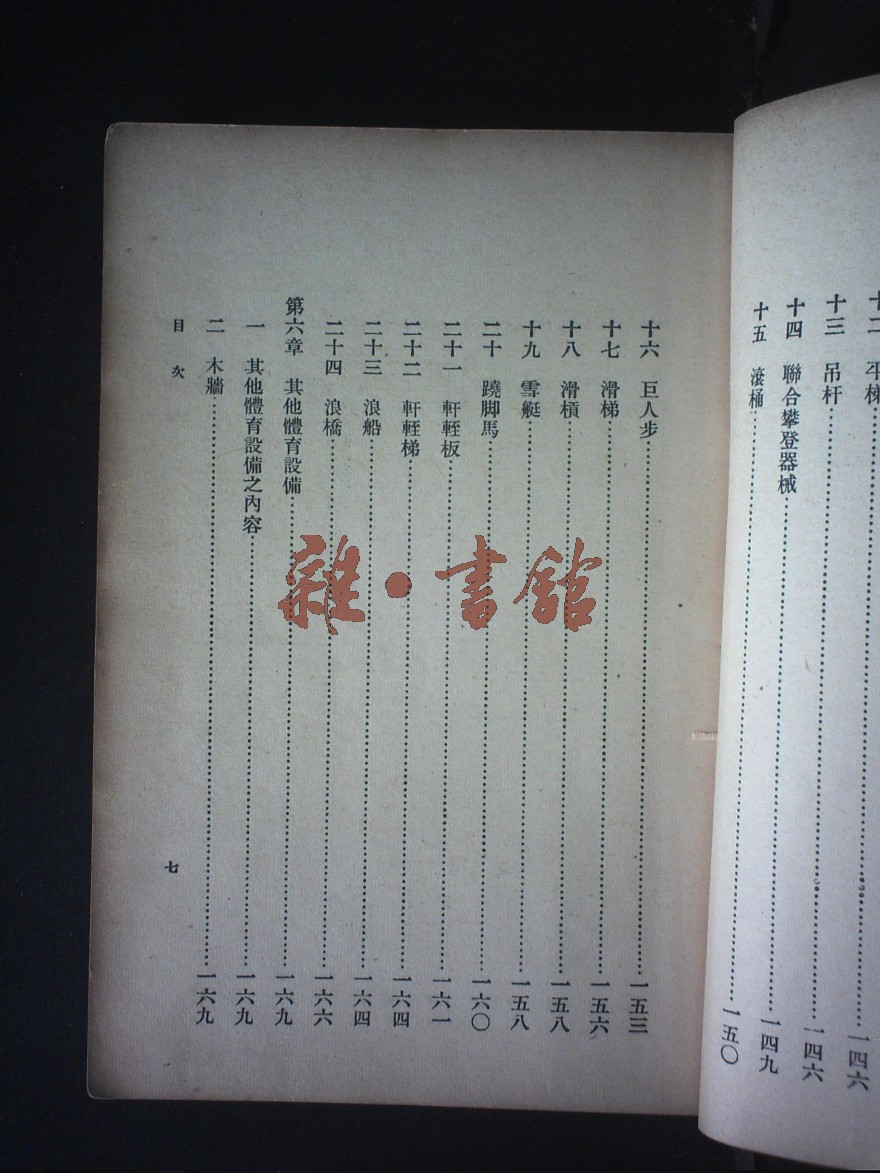 十二 平梯……一四六
十三 吊杆……一四六
十四 聯合攀登器械……一四九
十五 滾桶……一五〇
十六 巨人步……一五三
十七 滑梯……一五六
十八 滑槓……一五八
十九 雪艇……一五八
二十 蹺脚馬……一六〇
二十一 軒輊板……一六一
二十二 軒輊梯……一六四
二十三 浪船……一六四
二十四 浪橋……一六六
第六章 其他體育設備……一六九
一 其他體育設備之內容……一六九
二 木牆……一六九
目次
七
雜·書館